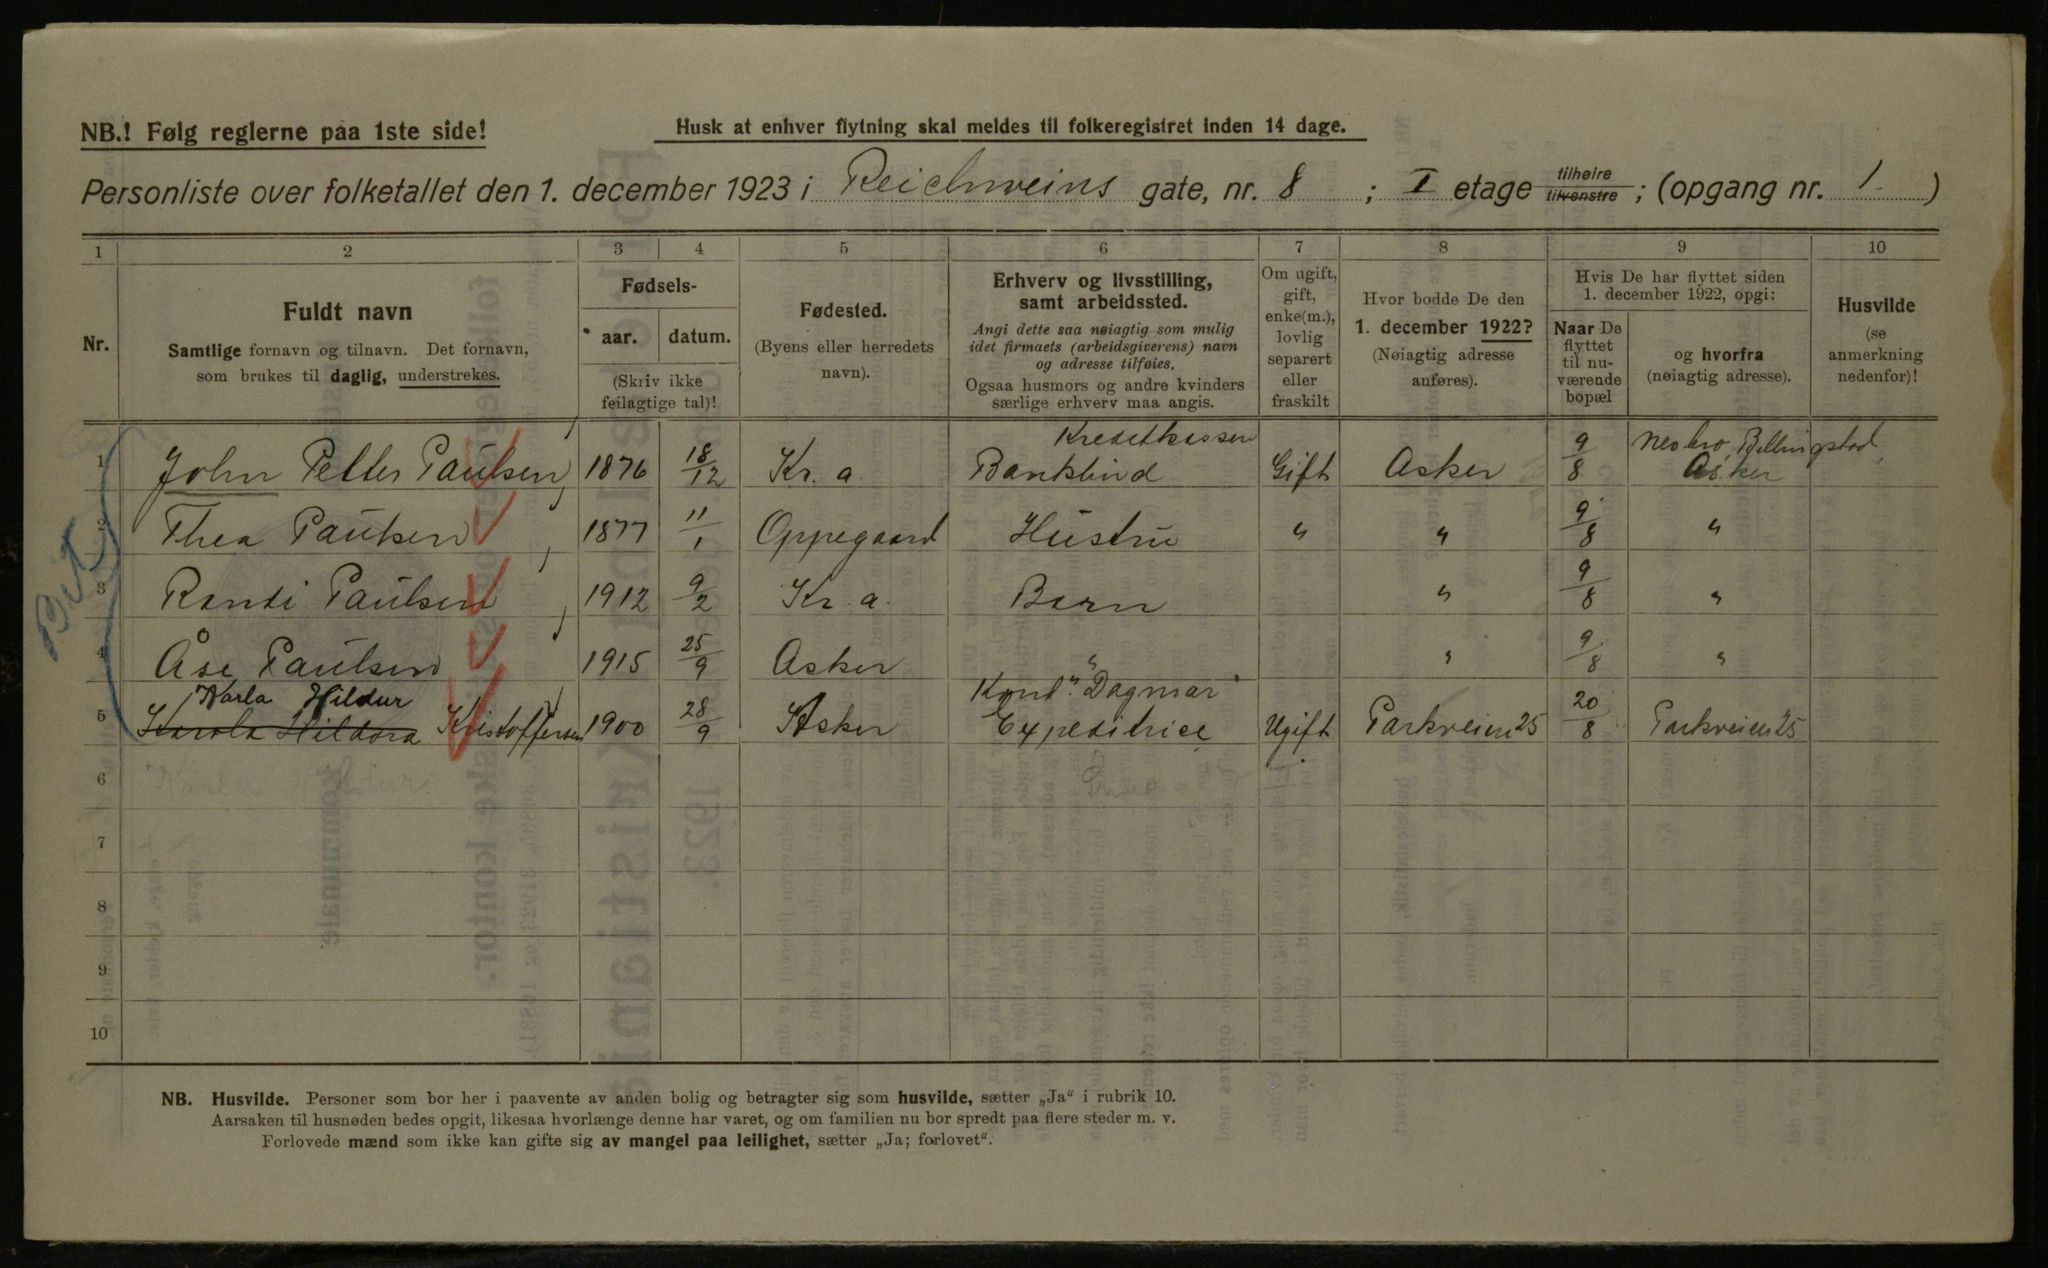 NB.! Følg reglerne paa 1ste side!
Husk at enhver flytning skal meldes til folkeregistret inden 14 dage.
Personliste over folketallet den 1. december 1923 i Reichweins gate, nr. 8 ; I etage tilhøire tilvenstre ; (opgang nr. 1. )
1 2 3 4 5 6 7 8 9 10
Nr.
Fuldt navn
Samtlige fornavn og tilnavn. Det fornavn,
som brukes til daglig, understrekes.
Fødsels-
aar. datum.
(Skriv ikke
feilagtige tal)!
Fødested.
(Byens eller herredets
navn).
Erhverv og livsstilling,
samt arbeidssted.
Angi dette saa nøiagtig som mulig
idet firmaets (arbeidsgiverens) navn
og adresse tilføies.
Ogsaa husmors og andre kvinders
særlige erhverv maa angis.
Om ugift,
gift,
enke(m.),
lovlig
separert
eller
fraskilt
Hvor bodde De den
1. december 1922?
(Nøiagtig adresse
anføres).
Hvis De har flyttet siden
1. december 1922, opgi:
Naar De
flyttet
til nu-
værende
bopæl
og hvorfra
(nøiagtig adresse).
Husvilde
(se
anmerkning
nedenfor)!
Kreditkassen Nesbro, Billingstad,
1 John Petter Paulsen, 1876 18/12 Kr. a. Bankbud Gift Asker 9/8 Asker
2 Thea Paulsen, 1877 11/1 Oppegaard Hustru " " 9/8 "
3 Randi Paulsen, 1912 9/2 Kr. a. Barn " 9/8 "
4 Åse Paulsen 1915 25/9 Asker " " 9/8 "
Karla Hildur Kond. "Dagmar"
5 Karola Hildora Kristoffersen 1900 28/9 Asker Expeditrice Ugift. Parkveien 25 20/8 Parkveien 25
6 Karla Hildur.
7
8
9
10
NB. Husvilde. Personer som bor her i paavente av anden bolig og betragter sig som husvilde, sætter „Ja“ i rubrik 10.
Aarsaken til husnøden bedes opgit, likesaa hvorlænge denne har varet, og om familien nu bor spredt paa flere steder m. v.
Forlovede mænd som ikke kan gifte sig av mangel paa leilighet, sætter „Ja; forlovet“.